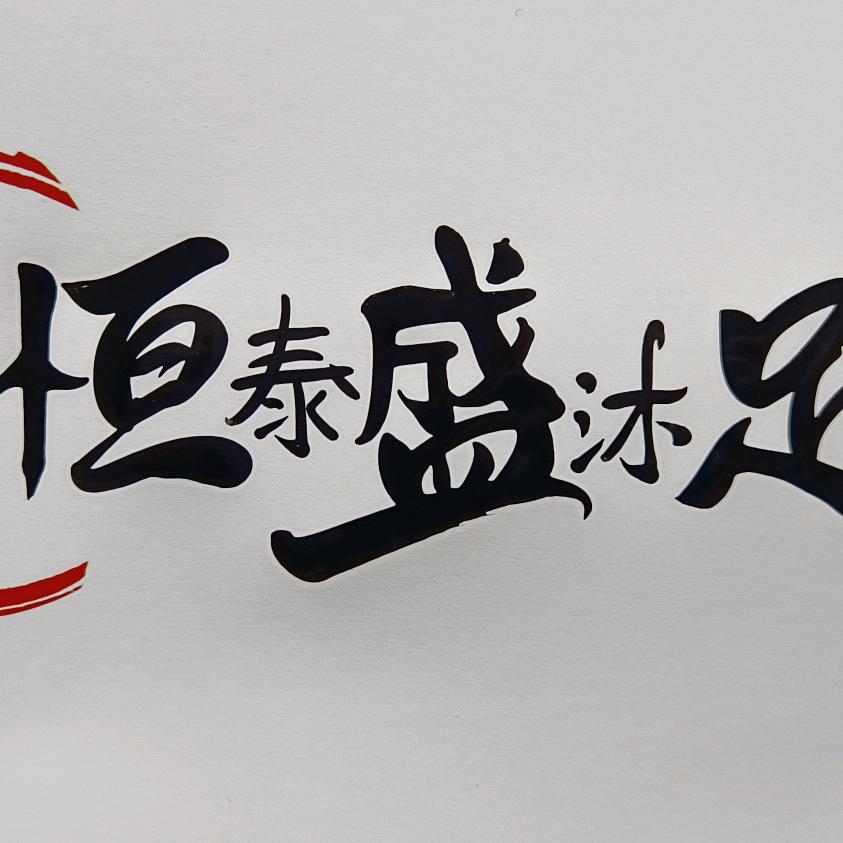 恒泰盛沐足